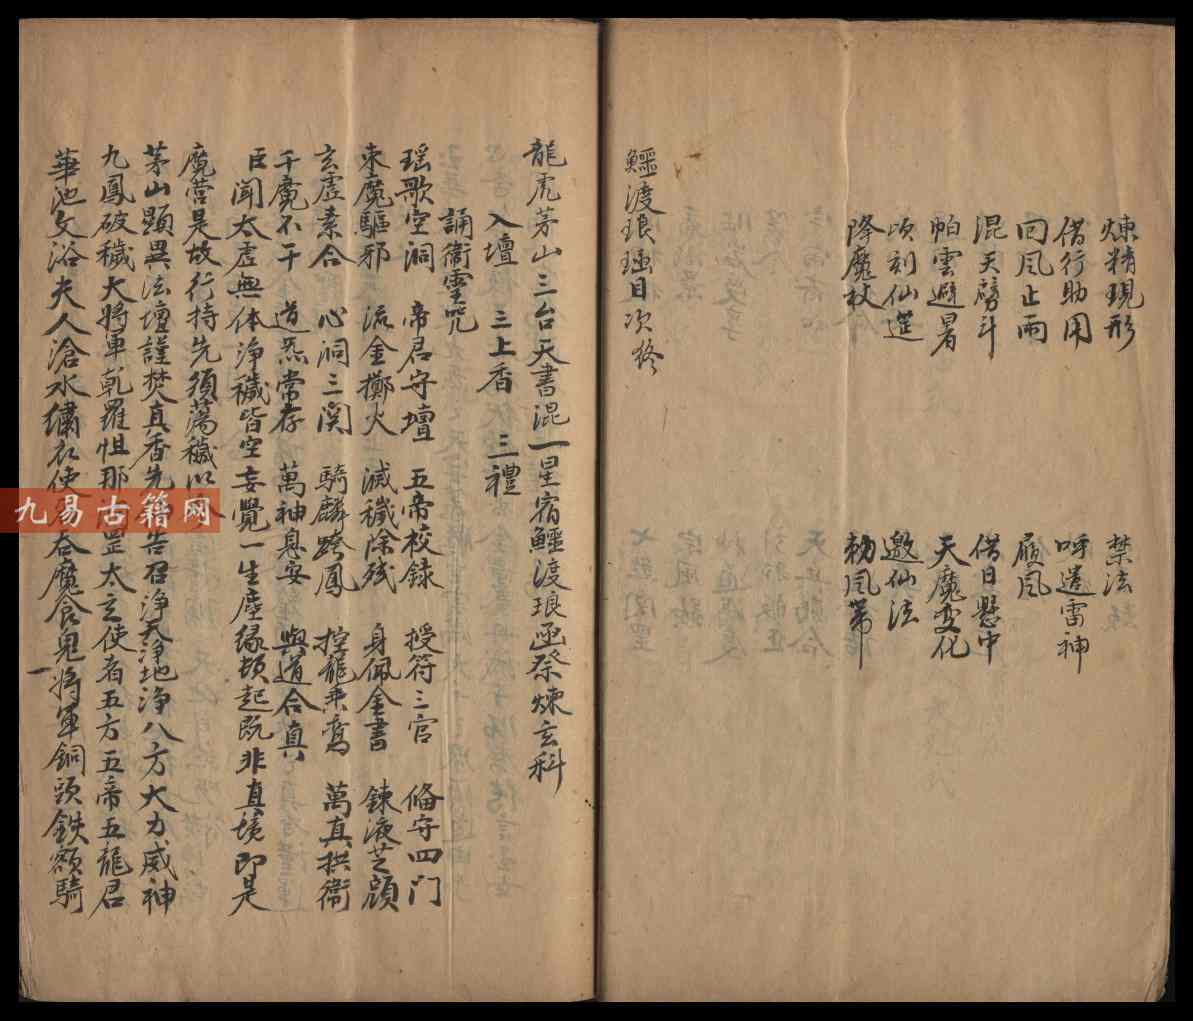 煉精現形　禁法
借行助用　呼遣雷神
回風止雨　履風
混天劈斗　借日懸中
帕雲避暑　天魔变化
頃刻仙筵　邀仙法
降魔杖　勅風帶
鱷渡琅函目次终
龍虎茅山三台天書混一星宿鱷渡琅函祭煉玄科
入壇　三上香　三禮
誦衛靈咒
瑶歌空洞　帝君守壇　五帝校録　授符三官　俻守四门
束魔驅邪　流金擲火　滅穢除残　身佩金書　鍊液芝顔
玄虚素合　心洞三関　騎麟跨鳳　控龍乘鸾　萬真拱衛
千魔不干　道炁常存　萬神息安　與道合真
臣聞太虚無体净穢皆空妄覺一生塵缘頓起既非真境即是
魔营是故行持先須蕩穢以
茅山顯異法壇謹焚真香先告召净天净地净八方大力威神
九鳳破穢大将軍乾羅怛那罡太玄使者五方五帝五龍君
華池文浴夫人滄水繡衣使者吞魔食鬼將軍銅頭鉄額騎
一
九易古籍网